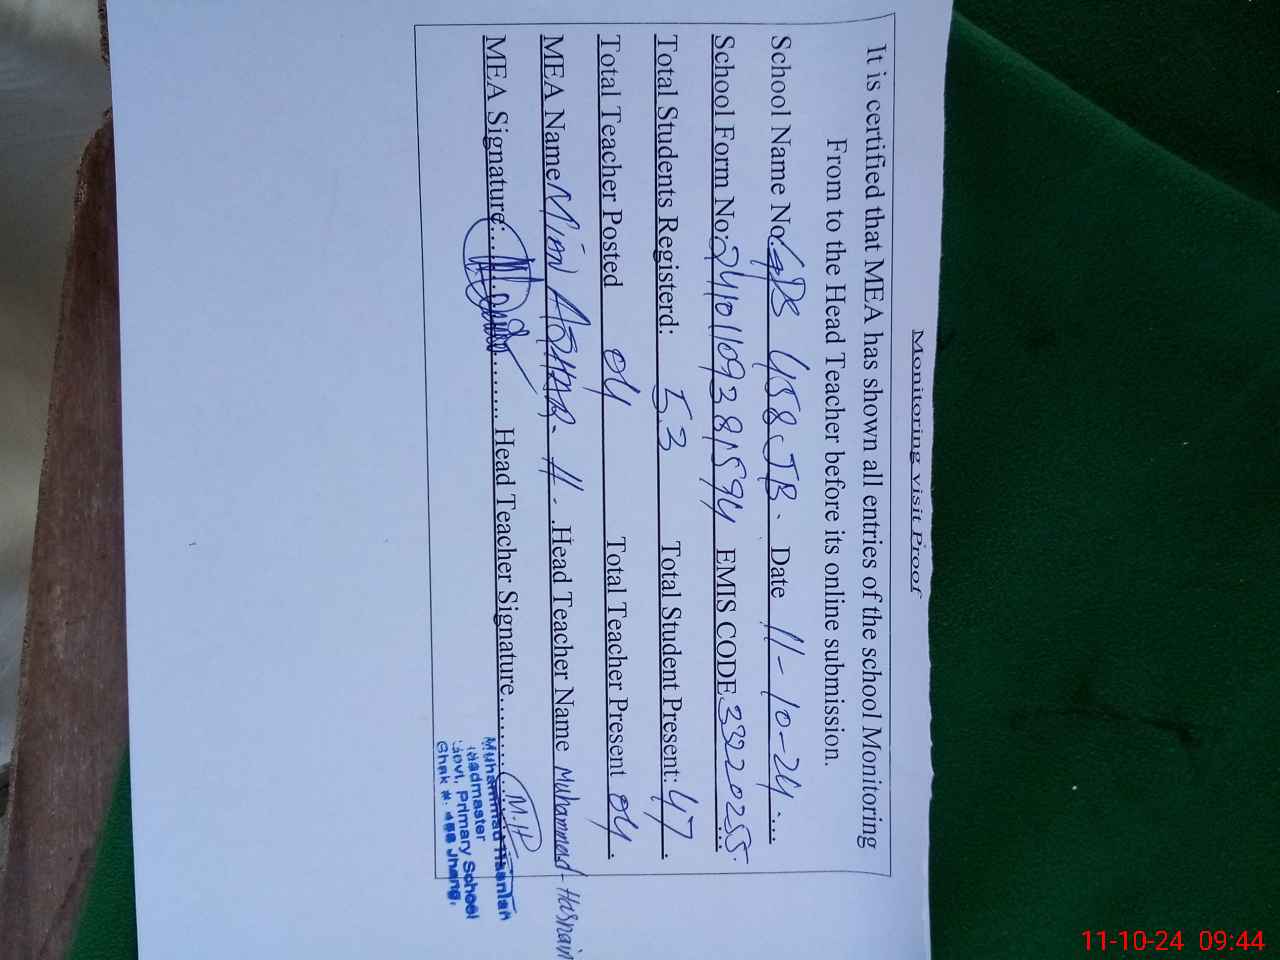 Monitoring visit Proof
It is certified that MEA has shown all entries of the school Monitoring
From to the Head Teacher before its online submission.
School Name No: GPS 458 JB. Date 11-10-24....
School Form No: 24101109381594 EMIS CODE 33220255.
Total Students Registerd: 53 Total Student Present: 47.
Total Teacher Posted 04 Total Teacher Present 04.
MEA Name Mian ASHAR. H. .Head Teacher Name Muhammad - Hasnain
MEA Signature:.................. Head Teacher Signature.......... M.H
Muhammad Hasnian
Headmaster
Govt, Primary School
Chak #. 458 Jhang.
11-10-24 09:44